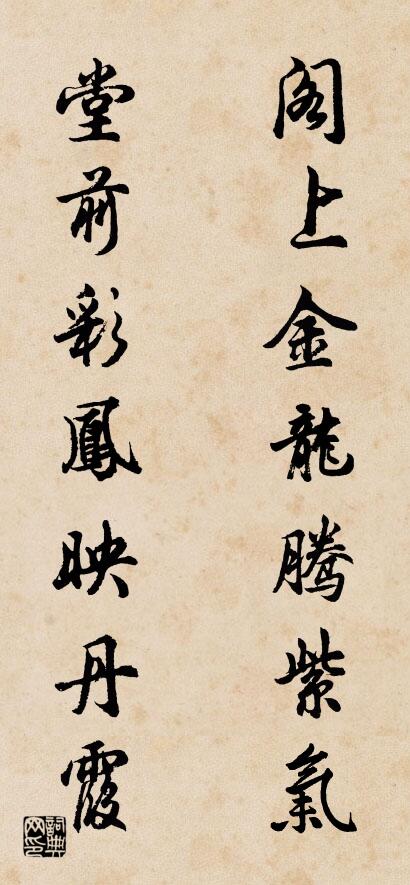 阁上金龍腾紫氣
堂前彩鳳映丹霞
詞典网印